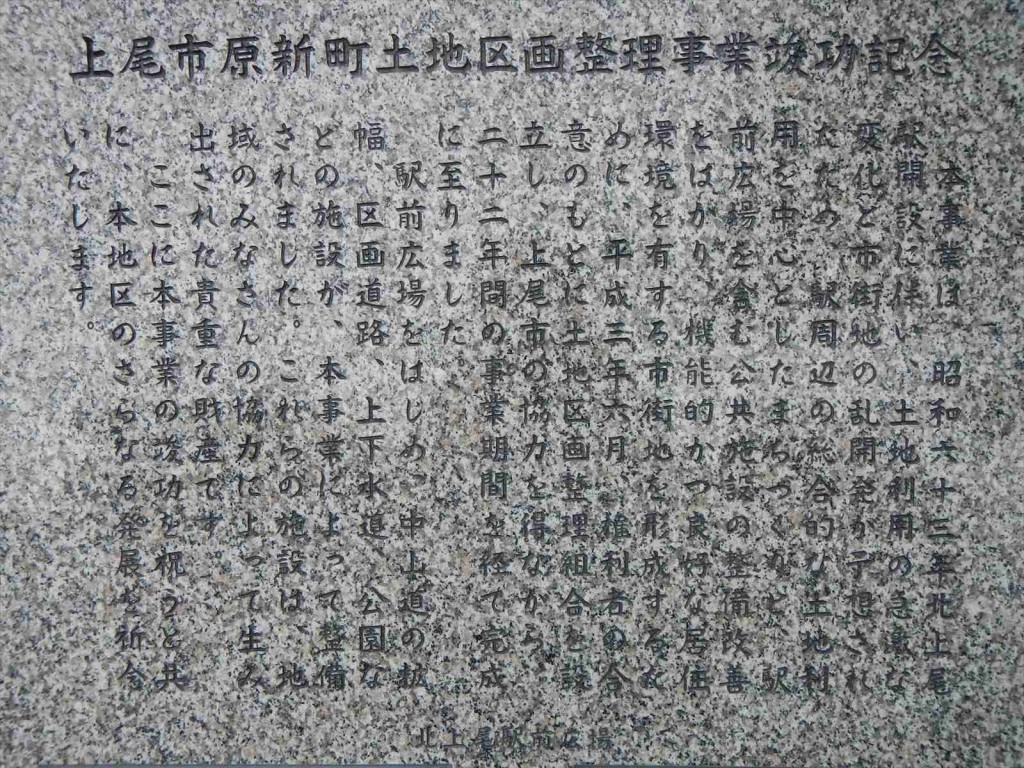 上尾市原新町土地区画整理事業竣功記念
本事業は、昭和六十三年北上尾
駅開設に伴い、土地利用の急激な
変化と市街地の乱開発が予想され
たため、駅周辺の総合的な土地利
用を中心としたまちづくりと、駅
前広場を含む公共施設の整備改善
をはかり、機能的かつ良好な居住
環境を有する市街地を形成するた
めに、平成三年六月、権利者の合
意のもとに土地区画整理組合を設
立し、上尾市の協力を得ながら、
二十二年間の事業期間を経て完成
に至りました。
駅前広場をはじめ、中上道の拡
幅、区画道路、上下水道、公園な
どの施設が、本事業によって整備
されました。これらの施設は、地
域のみなさんの協力によって生み
出された貴重な財産です。
ここに本事業の竣功を祝うと共
に、本地区のさらなる発展を祈念
いたします。
北上尾駅前広場